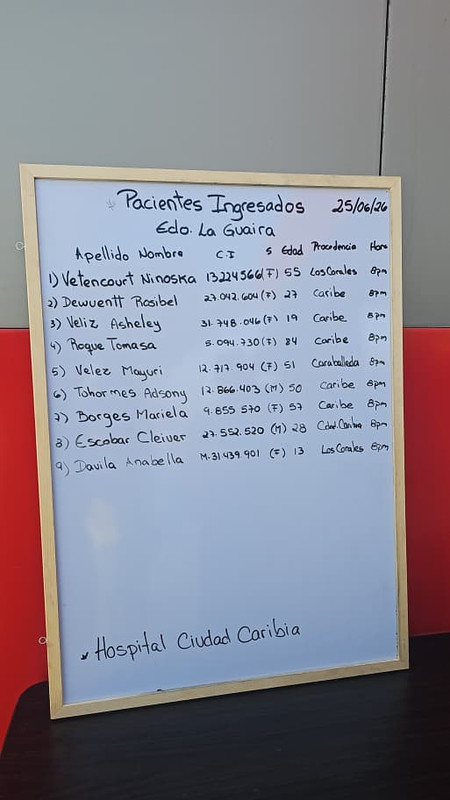 Pacientes Ingresados 25/06/26
Edo. La Guaira
Apellido Nombre C.I S Edad Procedencia Hora
1) Vetencourt Ninoska 13224566 (F) 55 Los Corales 8pm
2) Dewuentt Rosibel 27.042.604 (F) 27 Caribe 8pm
3) Veliz Asheley 31.748.046 (F) 19 Caribe 8pm
4) Roque Tomasa 5.094.730 (F) 84 Caribe 8pm
5) Velez Mayuri 12.717.904 (F) 51 Caraballeda 8pm
6) Tohormes Adsony 12.866.403 (M) 50 Caribe 8pm
7) Borges Mariela 9.855 570 (F) 57 Caribe 8pm
8) Escobar Cleiver 27.552.520 (M) 28 Cdad. Caribia 8pm
9) Davila Anabella M.31.439.901 (F) 13 Los Corales 8pm
Hospital Ciudad Caribia